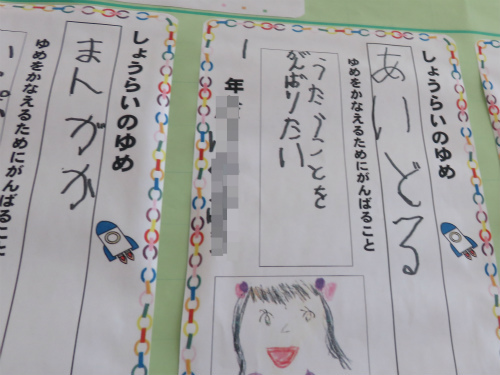 しょうらいのゆめ
あいどる
ゆめをかなえるためにがんばること
うたうことを
がんばりたい
1年
しょうらいのゆめ
まんがか
ゆめをかなえるためにがんばること